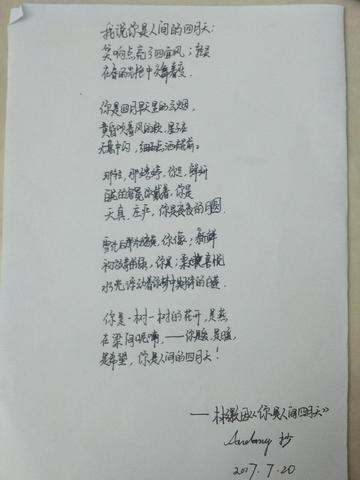 我说你是人间的四月天;
笑响点亮了四面风;轻灵
在春的光艳中交舞着变.
你是四月早天里的云烟,
黄昏吹着风的软,星子在
无意中闪,细雨点洒在花前。
那轻,那娉婷,你是,鲜妍
百花的冠冕你戴着,你是
天真,庄严,你是夜夜的月圆.
雪化后那片鹅黄,你像;新鲜
初放芽的绿,你是;柔嫩喜悦
水光浮动着你梦中期待的白莲.
你是一树一树的花开,是燕
在梁间呢喃,——你是爱,是暖,
是希望,你是人间的四月天!
——林徽因《你是人间四月天》
抄
2017.7.20